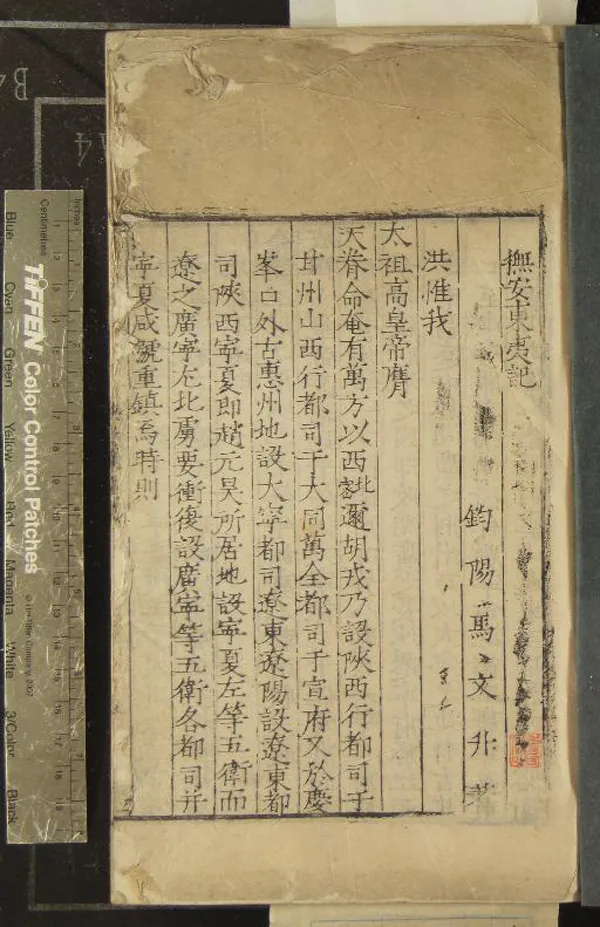 撫安東夷記
鈞陽馬文升著
洪惟我
太祖高皇帝膺
天眷命奄有萬方以西北密邇胡戎乃設陝西行都司于
甘州山西行都司于大同萬全都司于宣府又於慶
峯口外古惠州地設大寧都司遼東遼陽設遼東都
司陝西寧夏即趙元昊所居地設寧夏左等五衛而
遼之廣寧尤北虜要衝復設廣寧等五衛各都司并
寧夏咸號重鎮焉時則
Inches
Centimetres
TIFFEN Color Control Patches
© The Tiffen Company, 2007
Blue
Cyan
Green
Yellow
Red
Magenta
White
3/Color
Black
A4